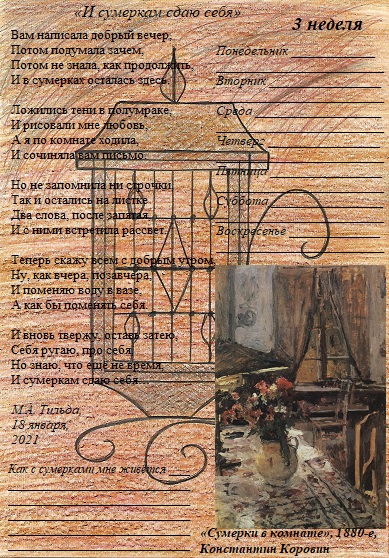 «И сумеркам сдаю себя»
3 неделя
Вам написала добрый вечер,
Потом подумала зачем,
Потом не знала, как продолжить,
И в сумерках осталась здесь.
Ложились тени в полумраке,
И рисовали мне любовь,
А я по комнате ходила,
И сочиняла вам письмо.
Но не запомнила ни строчки,
Так и остались на листке
Два слова, после запятая,
И с ними встретила рассвет.
Теперь скажу всем с добрым утром,
Ну, как вчера, позавчера,
И поменяю воду в вазе,
А как бы поменять себя.
И вновь твержу, оставь затею,
Себя ругаю, про себя,
Но знаю, что ещё не время,
И сумеркам сдаю себя...
М.А. Тильда,
18 января,
2021
Как с сумерками мне живётся
Понедельник
Вторник
Среда
Четверг
Пятница
Суббота
Воскресенье
«Сумерки в комнате», 1880-е,
Константин Коровин